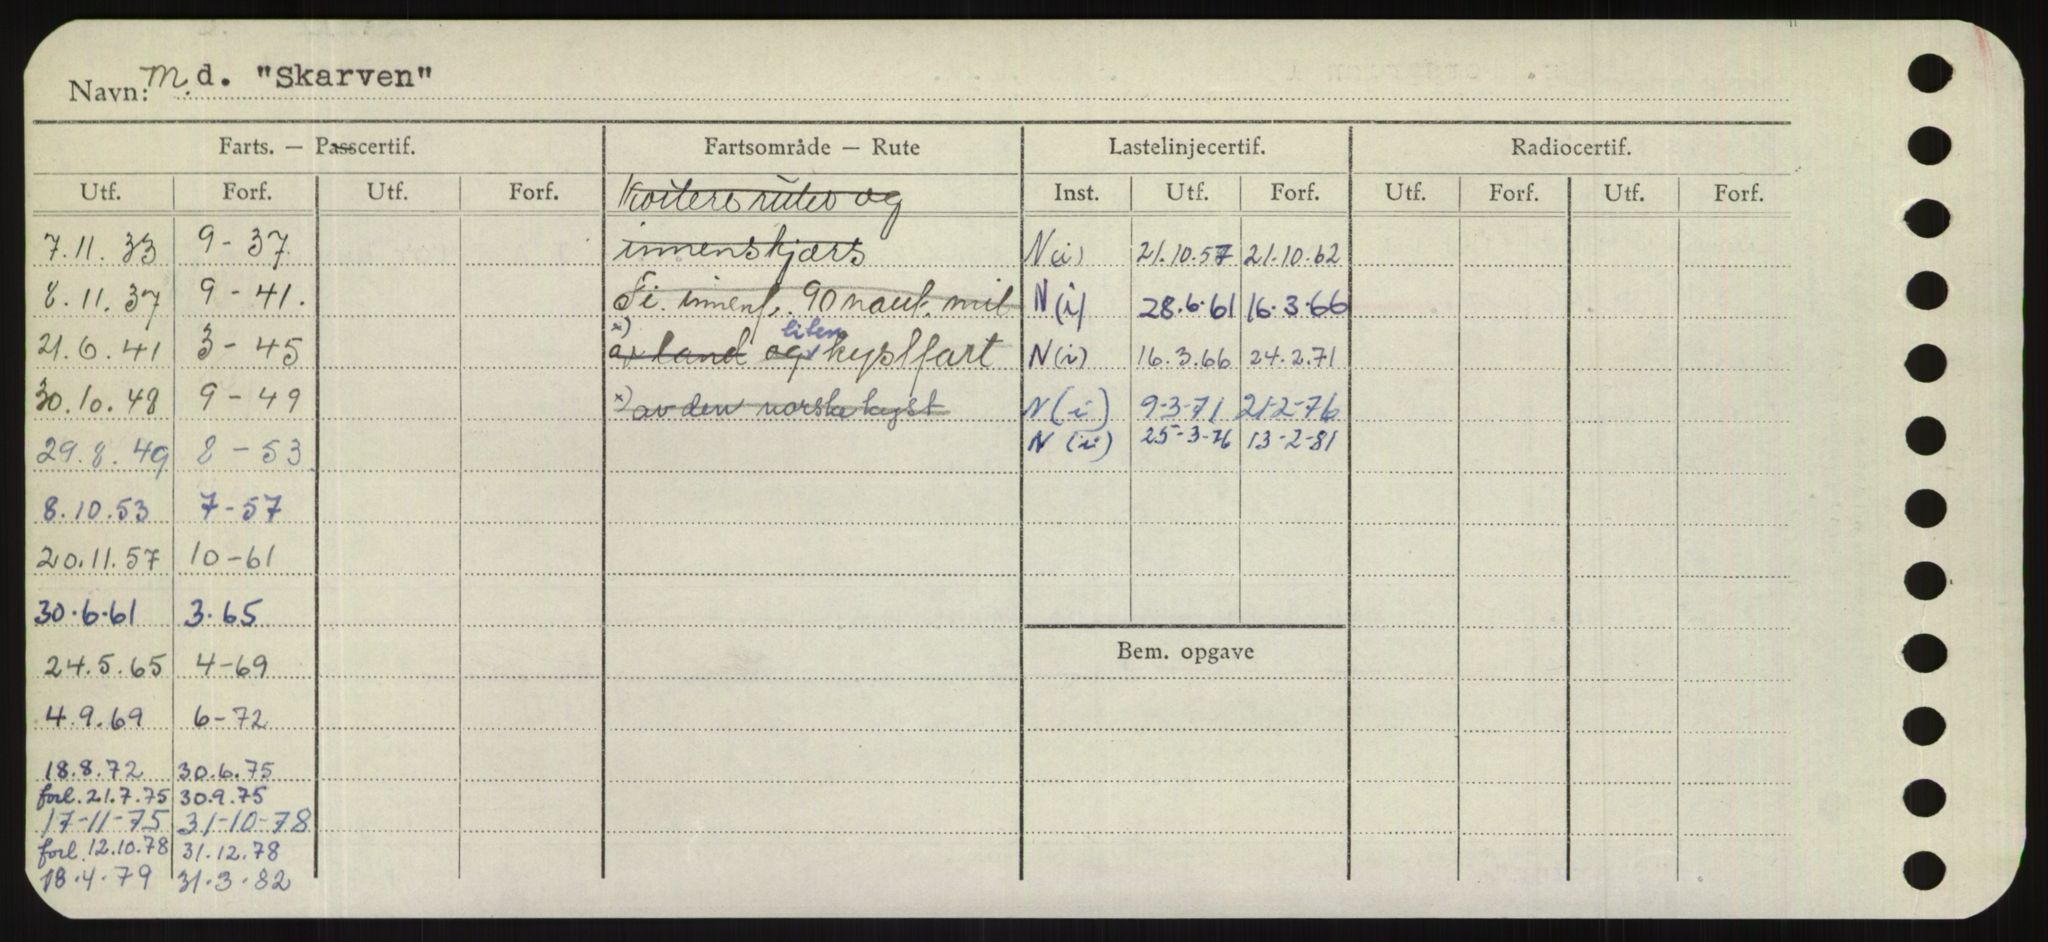 Navn: M.d. "Skarven"
Farts. — Passcertif. Fartsområde — Rute Lastelinjecertif. Radiocertif.
Utf. Forf. Utf. Forf. ruter og Inst. Utf. Forf. Utf. Forf. Utf. Forf.
7.11.33 9-37 innenskjærs N(i) 21.10.57 21.10.62
8.11.37 9-41. Fi. innenf. 90 naut. mil N(i) 28.6.61 16.3.66
x) liten
21.6.41 3-45 av land og kystfart N(i) 16.3.66 24.2.71
30.10.48 9-49 x) av den norske kyst N(i) 9-3-71 21-2-76
29.8.49 8-53 N(i) 25-3-76 13-2-81
8.10.53 7-57
20.11.57 10-61
30.6.61 3.65
Bem. opgave
24.5.65 4-69
4.9.69 6-72
18.8.72 30.6.75
forl. 21.7.75 30.9.75
17-11-75 31-10-78
forl. 12.10.78 31.12.78
18.4.79 31.3.82